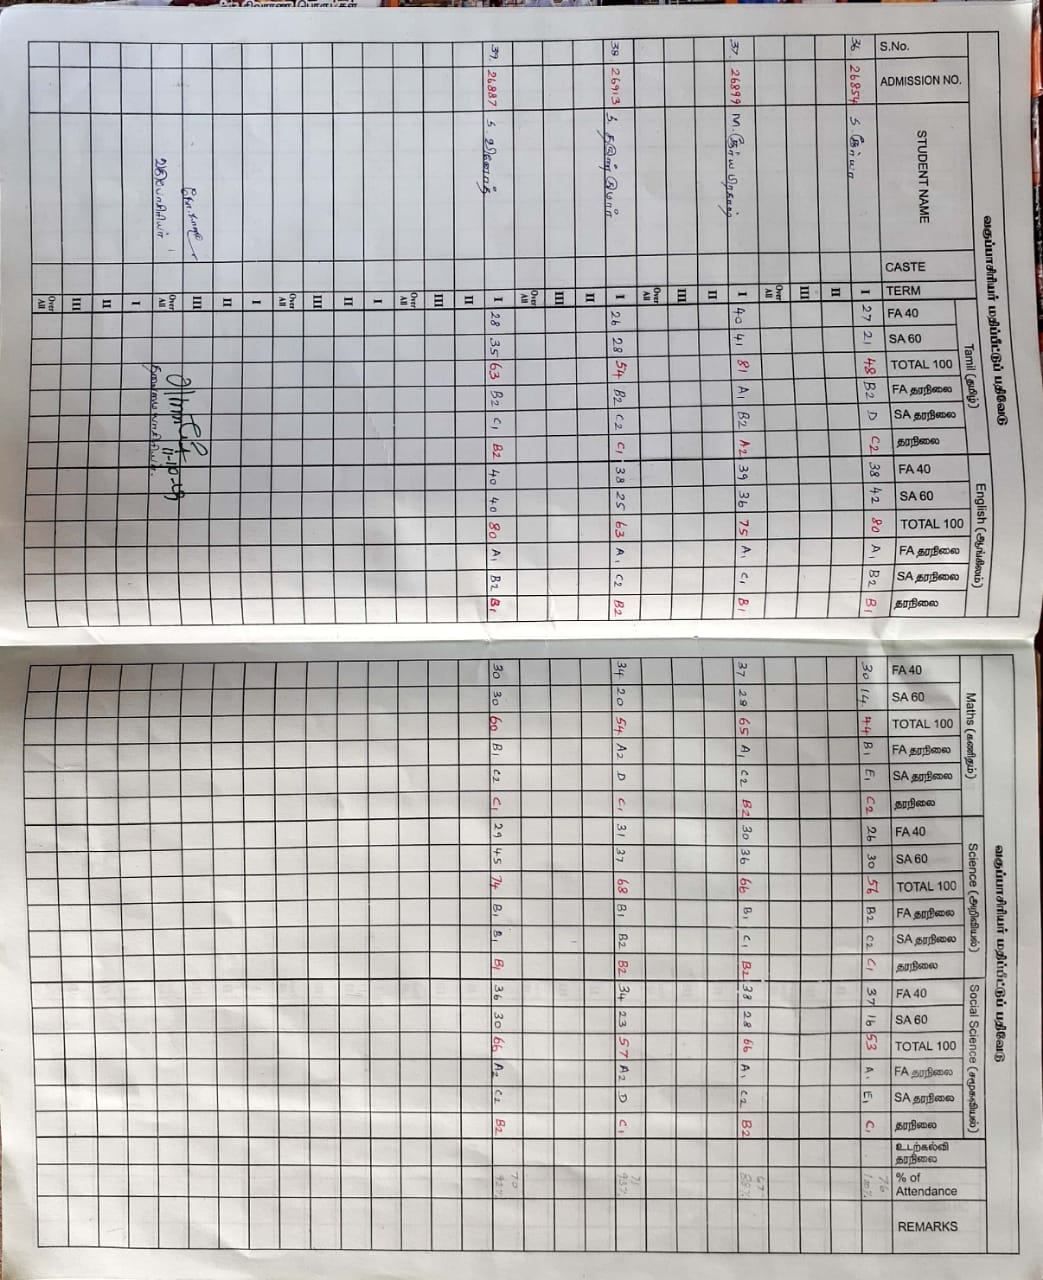 வகுப்பாசிரியர் மதிப்பீட்டுப் பதிவேடு
S.No. ADMISSION NO. STUDENT NAME CASTE TERM Tamil (தமிழ்) English (ஆங்கிலம்)
FA 40 SA 60 TOTAL 100 FA தரநிலை SA தரநிலை தரநிலை FA 40 SA 60 TOTAL 100 FA தரநிலை SA தரநிலை தரநிலை
36 26854 S. I 27 21 48 B2 D C2 38 42 80 A1 B2 B1
II
III
Over All
37. 26899 M. I 40 41 81 A1 B2 A2 39 36 75 A1 C1 B1
II
III
Over All
38. 26913 S. I 26 28 54 B2 C2 C1 38 25 63 A1 C2 B2
II
III
Over All
39. 26887 S. வினோத் I 28 35 63 B2 C1 B2 40 40 80 A1 B2 B1
II
III
Over All
I
II
III
Over All
I
II
III
Over All
வகுப்பாசிரியர்
11-10-19
தலைமையாசிரியர்.
I
II
III
Over All
வகுப்பாசிரியர் மதிப்பீட்டுப் பதிவேடு
Maths (கணிதம்) Science (அறிவியல்) Social Science (சமூகவியல்) உடற்கல்வி தரநிலை % of Attendance REMARKS
FA 40 SA 60 TOTAL 100 FA தரநிலை SA தரநிலை தரநிலை FA 40 SA 60 TOTAL 100 FA தரநிலை SA தரநிலை தரநிலை FA 40 SA 60 TOTAL 100 FA தரநிலை SA தரநிலை தரநிலை
76
30 14 44 B1 E1 C2 26 30 56 B2 C2 C1 37 16 53 A1 E1 C1 100%
67
37 28 65 A1 C2 B2 30 36 66 B1 C1 B2 38 28 66 A1 C2 B2 88%
71
34 20 54 A2 D C1 31 37 68 B1 B2 B2 34 23 57 A2 D C1 93%
70
30 30 60 B1 C2 C1 29 45 74 B1 B1 B1 36 30 66 A2 C2 B2 92%